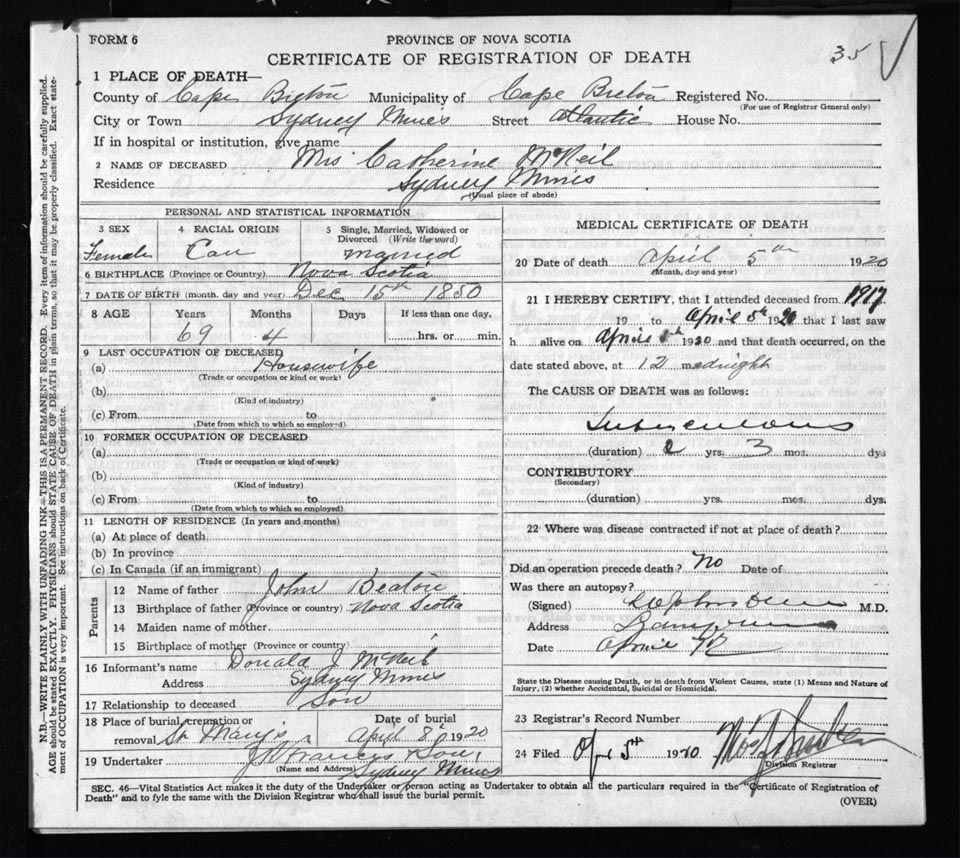 FORM 6
PROVINCE OF NOVA SCOTIA
CERTIFICATE OF REGISTRATION OF DEATH
35
1 PLACE OF DEATH—
County of Cape Breton Municipality of Cape Breton Registered No.
(For use of Registrar General only)
City or Town Sydney Mines Street Atlantic House No.
If in hospital or institution, give name
2 NAME OF DECEASED Mrs Catherine McNeil
Residence Sydney Mines
(Usual place of abode)
PERSONAL AND STATISTICAL INFORMATION
3 SEX 4 RACIAL ORIGIN 5 Single, Married, Widowed or Divorced (Write the word)
Female Can married
6 BIRTHPLACE (Province or Country) Nova Scotia
7 DATE OF BIRTH (month, day and year) Dec 15th 1850
8 AGE Years Months Days If less than one day,
69 4 hrs. or min.
9 LAST OCCUPATION OF DECEASED
(a) Housewife
(Trade or occupation or kind or work)
(b)
(Kind of industry)
(c) From to
(Date from which to which so employed)
10 FORMER OCCUPATION OF DECEASED
(a)
(Trade or occupation or kind of work)
(b)
(Kind of industry)
(c) From to
(Date from which to which so employed)
11 LENGTH OF RESIDENCE (In years and months)
(a) At place of death
(b) In province
(c) In Canada (if an immigrant)
Parents
12 Name of father John Beaton
13 Birthplace of father (Province or country) Nova Scotia
14 Maiden name of mother
15 Birthplace of mother (Province or country)
16 Informant's name Donald J McNeil
Address Sydney Mines
17 Relationship to deceased Son
18 Place of burial, cremation or removal St Mary's Date of burial April 8 1920
19 Undertaker
(Name and Address) Sydney Mines
MEDICAL CERTIFICATE OF DEATH
20 Date of death April 5th 1920
(Month, day and year)
21 I HEREBY CERTIFY, that I attended deceased from 1917
19 to April 5th 1920 that I last saw
h alive on April 1920 and that death occurred, on the
date stated above, at 12 midnight
The CAUSE OF DEATH was as follows:
Tuberculous
(duration) 2 yrs. 3 mos. dys
CONTRIBUTORY
(Secondary)
(duration) yrs. mos. dys.
22 Where was disease contracted if not at place of death?
Did an operation precede death? No Date of
Was there an autopsy?
(Signed) M.D.
Address
Date April
State the Disease causing Death, or in death from Violent Causes, state (1) Means and Nature of
Injury, (2) whether Accidental, Suicidal or Homicidal.
23 Registrar's Record Number
24 Filed April 5th 1920
Division Registrar
SEC. 46—Vital Statistics Act makes it the duty of the Undertaker or person acting as Undertaker to obtain all the particulars required in the "Certificate of Registration of
Death" and to fyle the same with the Division Registrar who shall issue the burial permit.
(OVER)
N.B.—WRITE PLAINLY WITH UNFADING INK—THIS IS A PERMANENT RECORD. Every item of information should be carefully supplied.
AGE should be stated EXACTLY. PHYSICIANS should STATE CAUSE OF DEATH in plain terms, so that it may be properly classified. Exact state-
ment of OCCUPATION is very important. See instructions on back of Certificate.